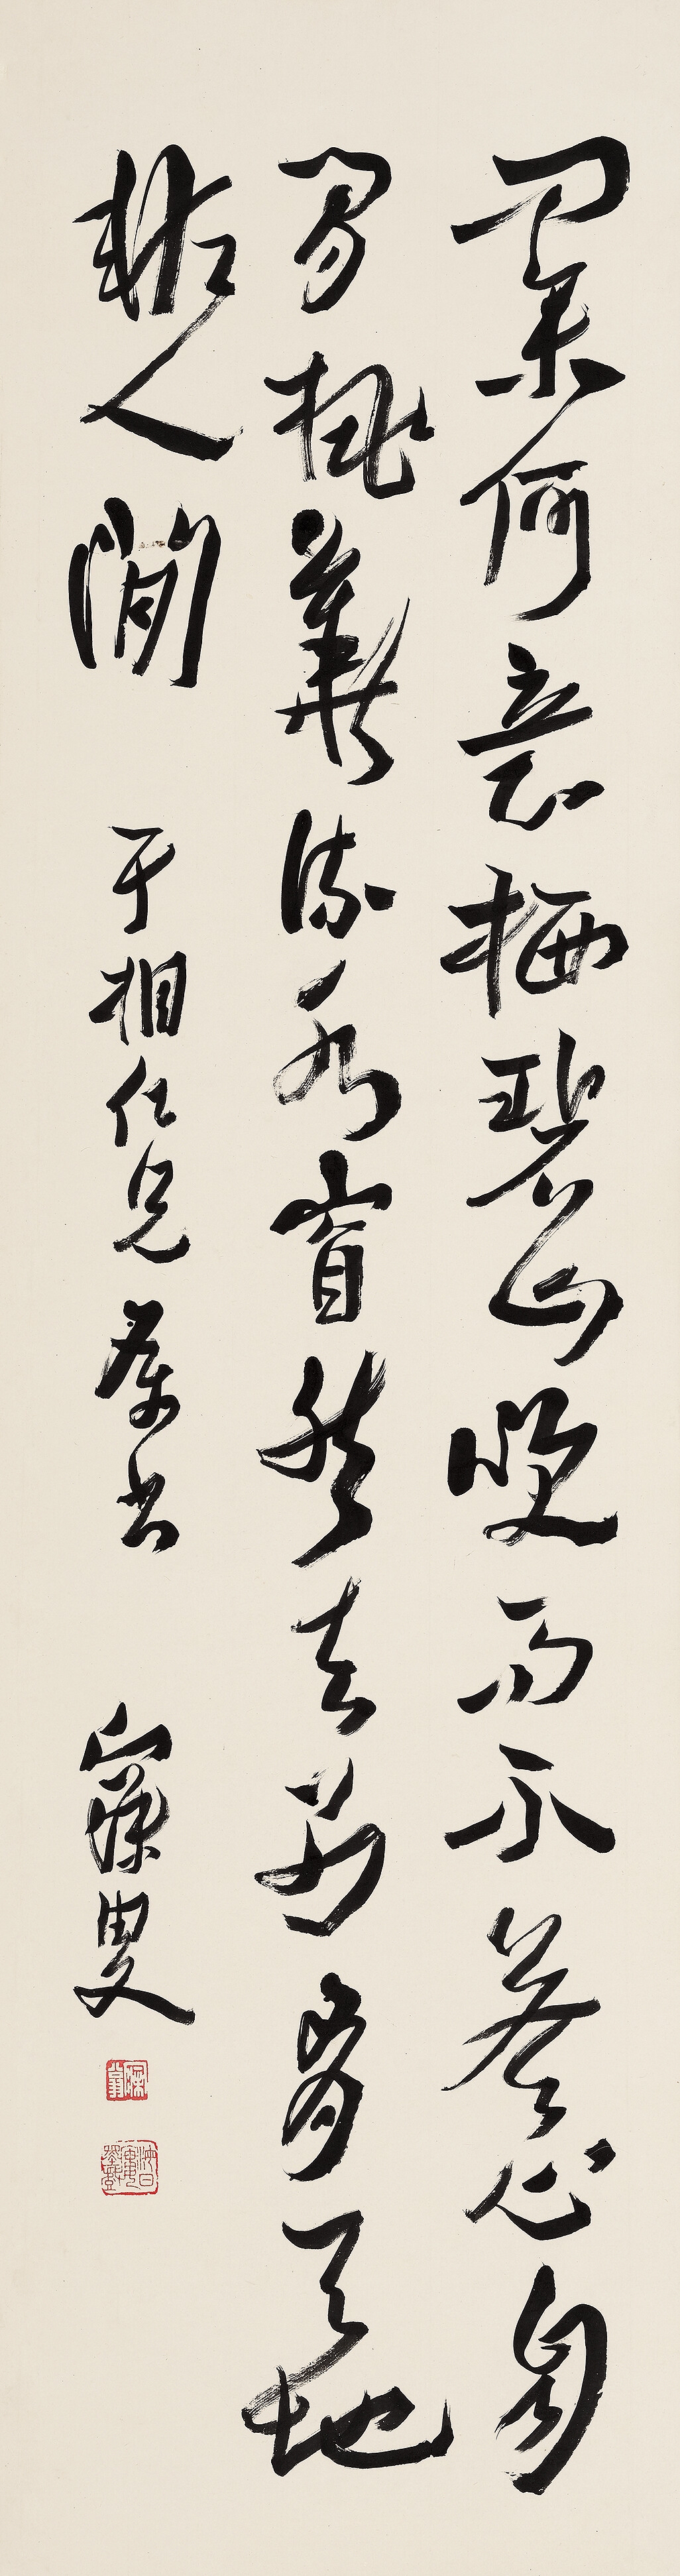 問余何意栖碧山咲而不荅心自
閒桃華流水窅然去別有天地
非人間 子相仁兄屬書 寐叟